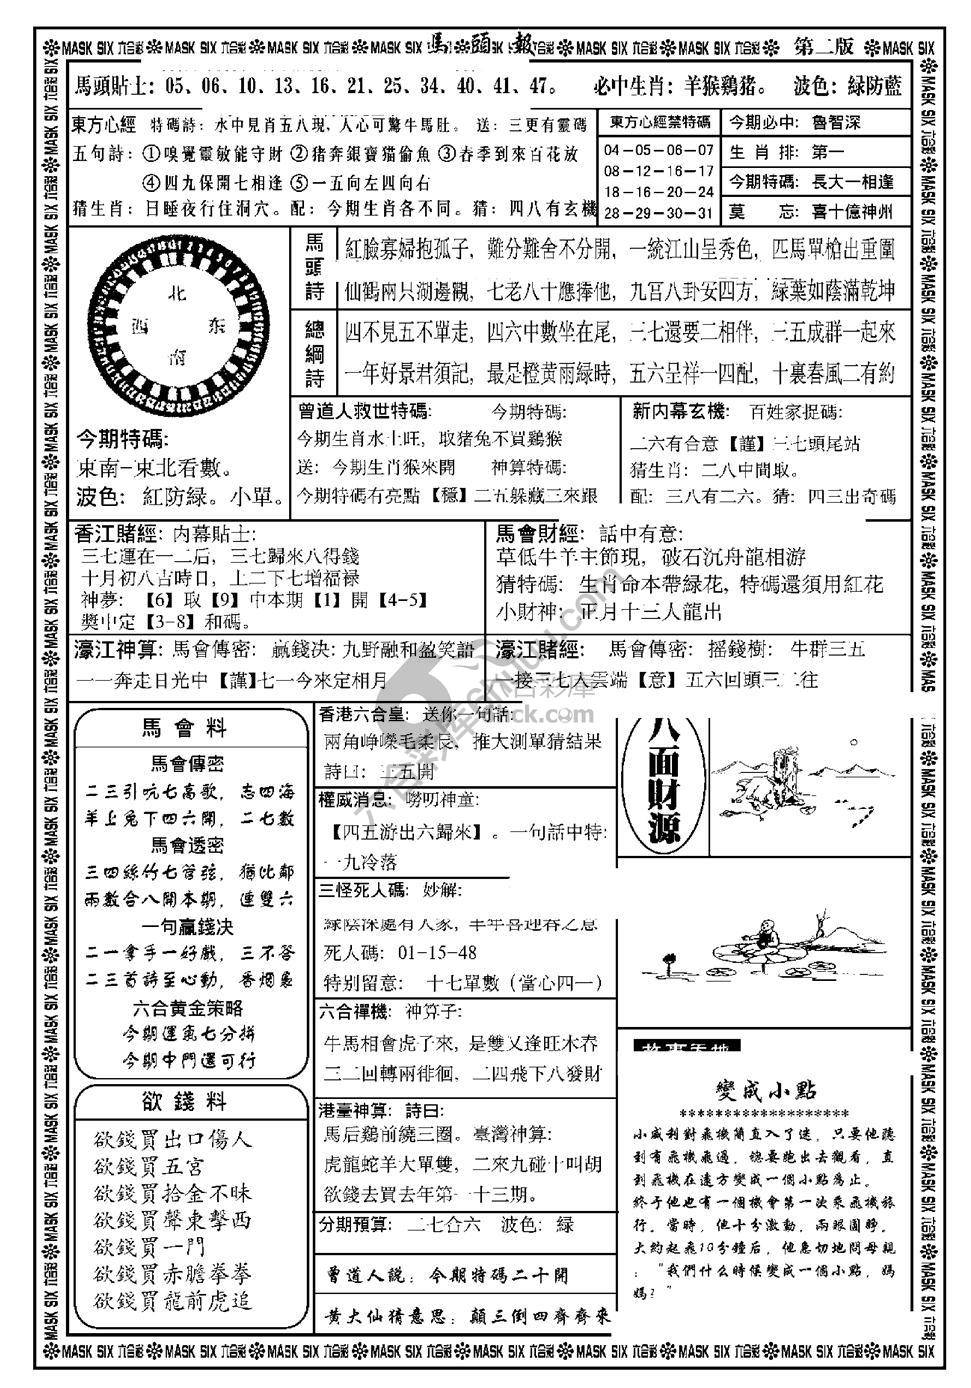 馬頭報
MASK SIX 六合彩 MASK SIX 六合彩 MASK SIX 六合彩 MASK SIX 六合彩 第二版 MASK SIX
馬頭貼士：05、06、10、13、16、21、25、34、40、41、47。 必中生肖：羊猴鷄猪。 波色：緑防藍
東方心經 特碼詩：水中見肖五八現，人心可驚牛馬肚。 送：三更有靈碼
五句詩：①嗅覺靈敏能守財 ②猪奔銀寶猫偷魚 ③春季到來百花放
④四九保開七相逢 ⑤一五向左四向右
猜生肖：日睡夜行住洞穴。配：今期生肖各不同。猜：四八有玄機
東方心經禁特碼
04-05-06-07
08-12-16-17
18-16-20-24
28-29-30-31
今期必中：魯智深
生肖排：第一
今期特碼：長大一相逢
莫忘：喜十億神州
北
西 东
南
今期特碼:
東南-東北看數。
波色：紅防緑。小單。
馬頭詩
紅臉寡婦抱孤子，難分難舍不分開，一統江山呈秀色，匹馬單槍出重圍
仙鶴兩只湖邊觀，七老八十應捧他，九宫八卦安四方，緑葉如蔭滿乾坤
總綱詩
四不見五不單走，四六中數坐在尾，三七還要二相伴，三五成群一起來
一年好景君須記，最是橙黄雨緑時，五六呈祥一四配，十裏春風二有約
曾道人救世特碼: 今期特碼:
今期生肖水上旺，取猪兔不買鷄猴
送：今期生肖猴來開 神算特碼:
今期特碼有亮點【穩】二五躲藏三來跟
新内幕玄機：百姓家捉碼:
二六有合意【謹】三七頭尾站
猜生肖：二八中間取。
配：三八有二六。猜：四三出奇碼
香江賭經: 内幕貼士:
三七運在一二后，三七歸來八得錢
十月初八吉時日，上二下七增福禄
神夢：【6】取【9】中本期【1】開【4-5】
獎中定【3-8】和碼。
馬會財經：話中有意:
草低牛羊主節現，破石沉舟龍相游
猜特碼：生肖命本帶緑花, 特碼還須用紅花
小財神：正月十三人龍出
濠江神算：馬會傳密：贏錢决: 九野融和盈笑語
一一奔走日光中【謹】七一今來定相月
濠江賭經： 馬會傳密：摇錢樹：牛群三五
一接三七人雲端【意】五六回頭三二往
馬會料
馬會傳密
二三引吭七高歌，志四海
羊上兔下四六開，二七數
馬會透密
三四絲竹七管弦，猶比鄰
兩數合八開本期，連雙六
一句贏錢决
二一拿手一好戲，三不答
二三首詩至心動，香烟裊
六合黄金策略
今期運氣七分拼
今期中門還可行
欲錢料
欲錢買出口傷人
欲錢買五宫
欲錢買拾金不昧
欲錢買聲東擊西
欲錢買一門
欲錢買赤膽拳拳
欲錢買龍前虎追
香港六合皇：送你一句話:
兩角崢嶸毛柔長，推大測單猜結果
詩曰：二五開
權威消息：嘮叨神童:
【四五游出六歸來】。一句話中特:
一九冷落
三怪死人碼：妙解:
緑陰深處有人家，羊年喜迎春之意
死人碼：01-15-48
特别留意： 十七單數（當心四一）
六合禪機：神算子:
牛馬相會虎子來, 是雙又逢旺木春
三二回轉兩徘徊，二四飛下八發財
港臺神算：詩曰:
馬后鷄前繞三圈。臺灣神算:
虎龍蛇羊大單雙，二來九碰十叫胡
欲錢去買去年第一十三期。
分期預算：二七合六 波色：緑
曾道人説：今期特碼二十開
黄大仙猜意思：顛三倒四齊齊來
八面財源
故事天地
變成小點
*******************
小威利對飛機簡直入了迷，只要他聽
到有飛機飛過，總要跑出去觀看，直
到飛機在遠方變成一個小點爲止。
終于他也有一個機會第一次乘飛機旅
行。當時，他十分激動，兩眼圓睜，
大約起飛10分鐘后，他急切地問母親
：“我們什么時候變成一個小點，媽
媽？”
MASK SIX 六合彩 MASK SIX 六合彩 MASK SIX 六合彩 MASK SIX 六合彩 MASK SIX 六合彩 MASK SIX 六合彩 MASK SIX 六合彩 MASK SIX 六合彩 MASK SIX